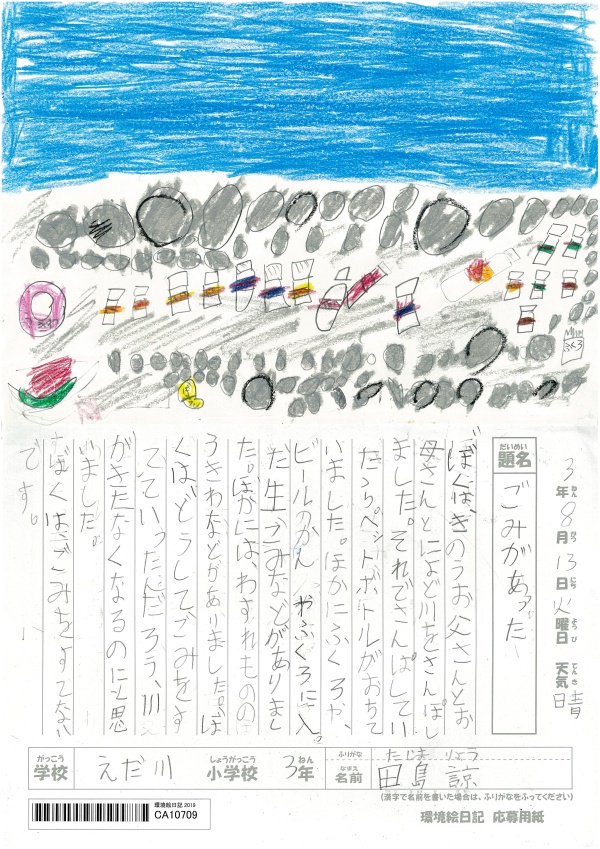 3年8月13日火曜日 天気晴
ねん がつ にち ようび てんき
だいめい
題名 ごみがあった
ぼくは、きのうお父さんとお
母さんとによど川をさんぽし
ました。それでさんぽしてい
たらペットボトルがおちて
いました。ほかにふくろや、
ビールのかん、やふくろに入
た生ごみなどがありまし
た。ほかには、わすれものの
うきわなどがありました。ぼ
くは、どうしてごみをす
てていったんだろう、川
がきたなくなるのにと思
いました。
ぼくは、ごみをすてない
です。
がっこう
学校 えだ川
しょうがっこう ねん
小学校 3年
ふりがな たじま りょう
なまえ
名前 田島 諒
(漢字で名前を書いた場合は、ふりがなをふってください)
環境絵日記2019
CA10709
環境絵日記 応募用紙